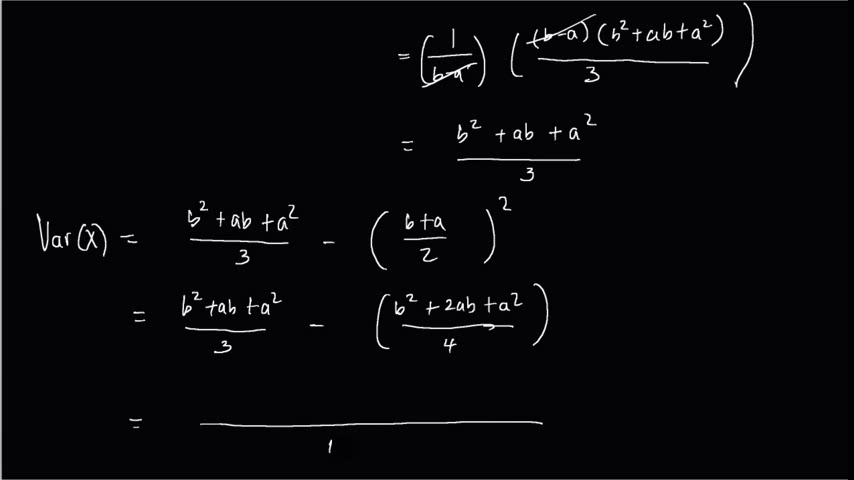 = (1/(b-a)) ((b-a)(b²+ab+a²)/3)
= (b² + ab + a²)/3
Var(X) = (b² + ab + a²)/3 - ((b+a)/2)²
= (b² + ab + a²)/3 - ((b² + 2ab + a²)/4)
= /1